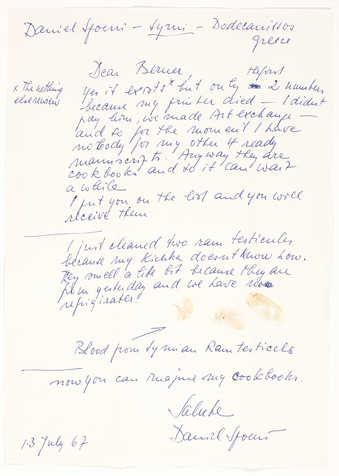 Daniel Spoerri – Symi – Dodecanissos
Greece
Dear Berner,
yes it exists* but only the first 2 numbers
* The Nothing
else
because my printer died – I didn't
pay him, we made Art exchange –
and so for the moment I have
nobody for my other 4 ready
manuscripts. Anyway they are
cookbooks and so it can wait
a while
I put you on the list and you will
receive them
I just cleaned two ram testicules
because my Kichka doesn't know how.
They smell a little bit because they are
from yesterday and we have no
refrigirater!
Blood from Symian Ram testicels
now you can imagine my cookbooks.
Salute
Daniel Spoerri
13 July 67